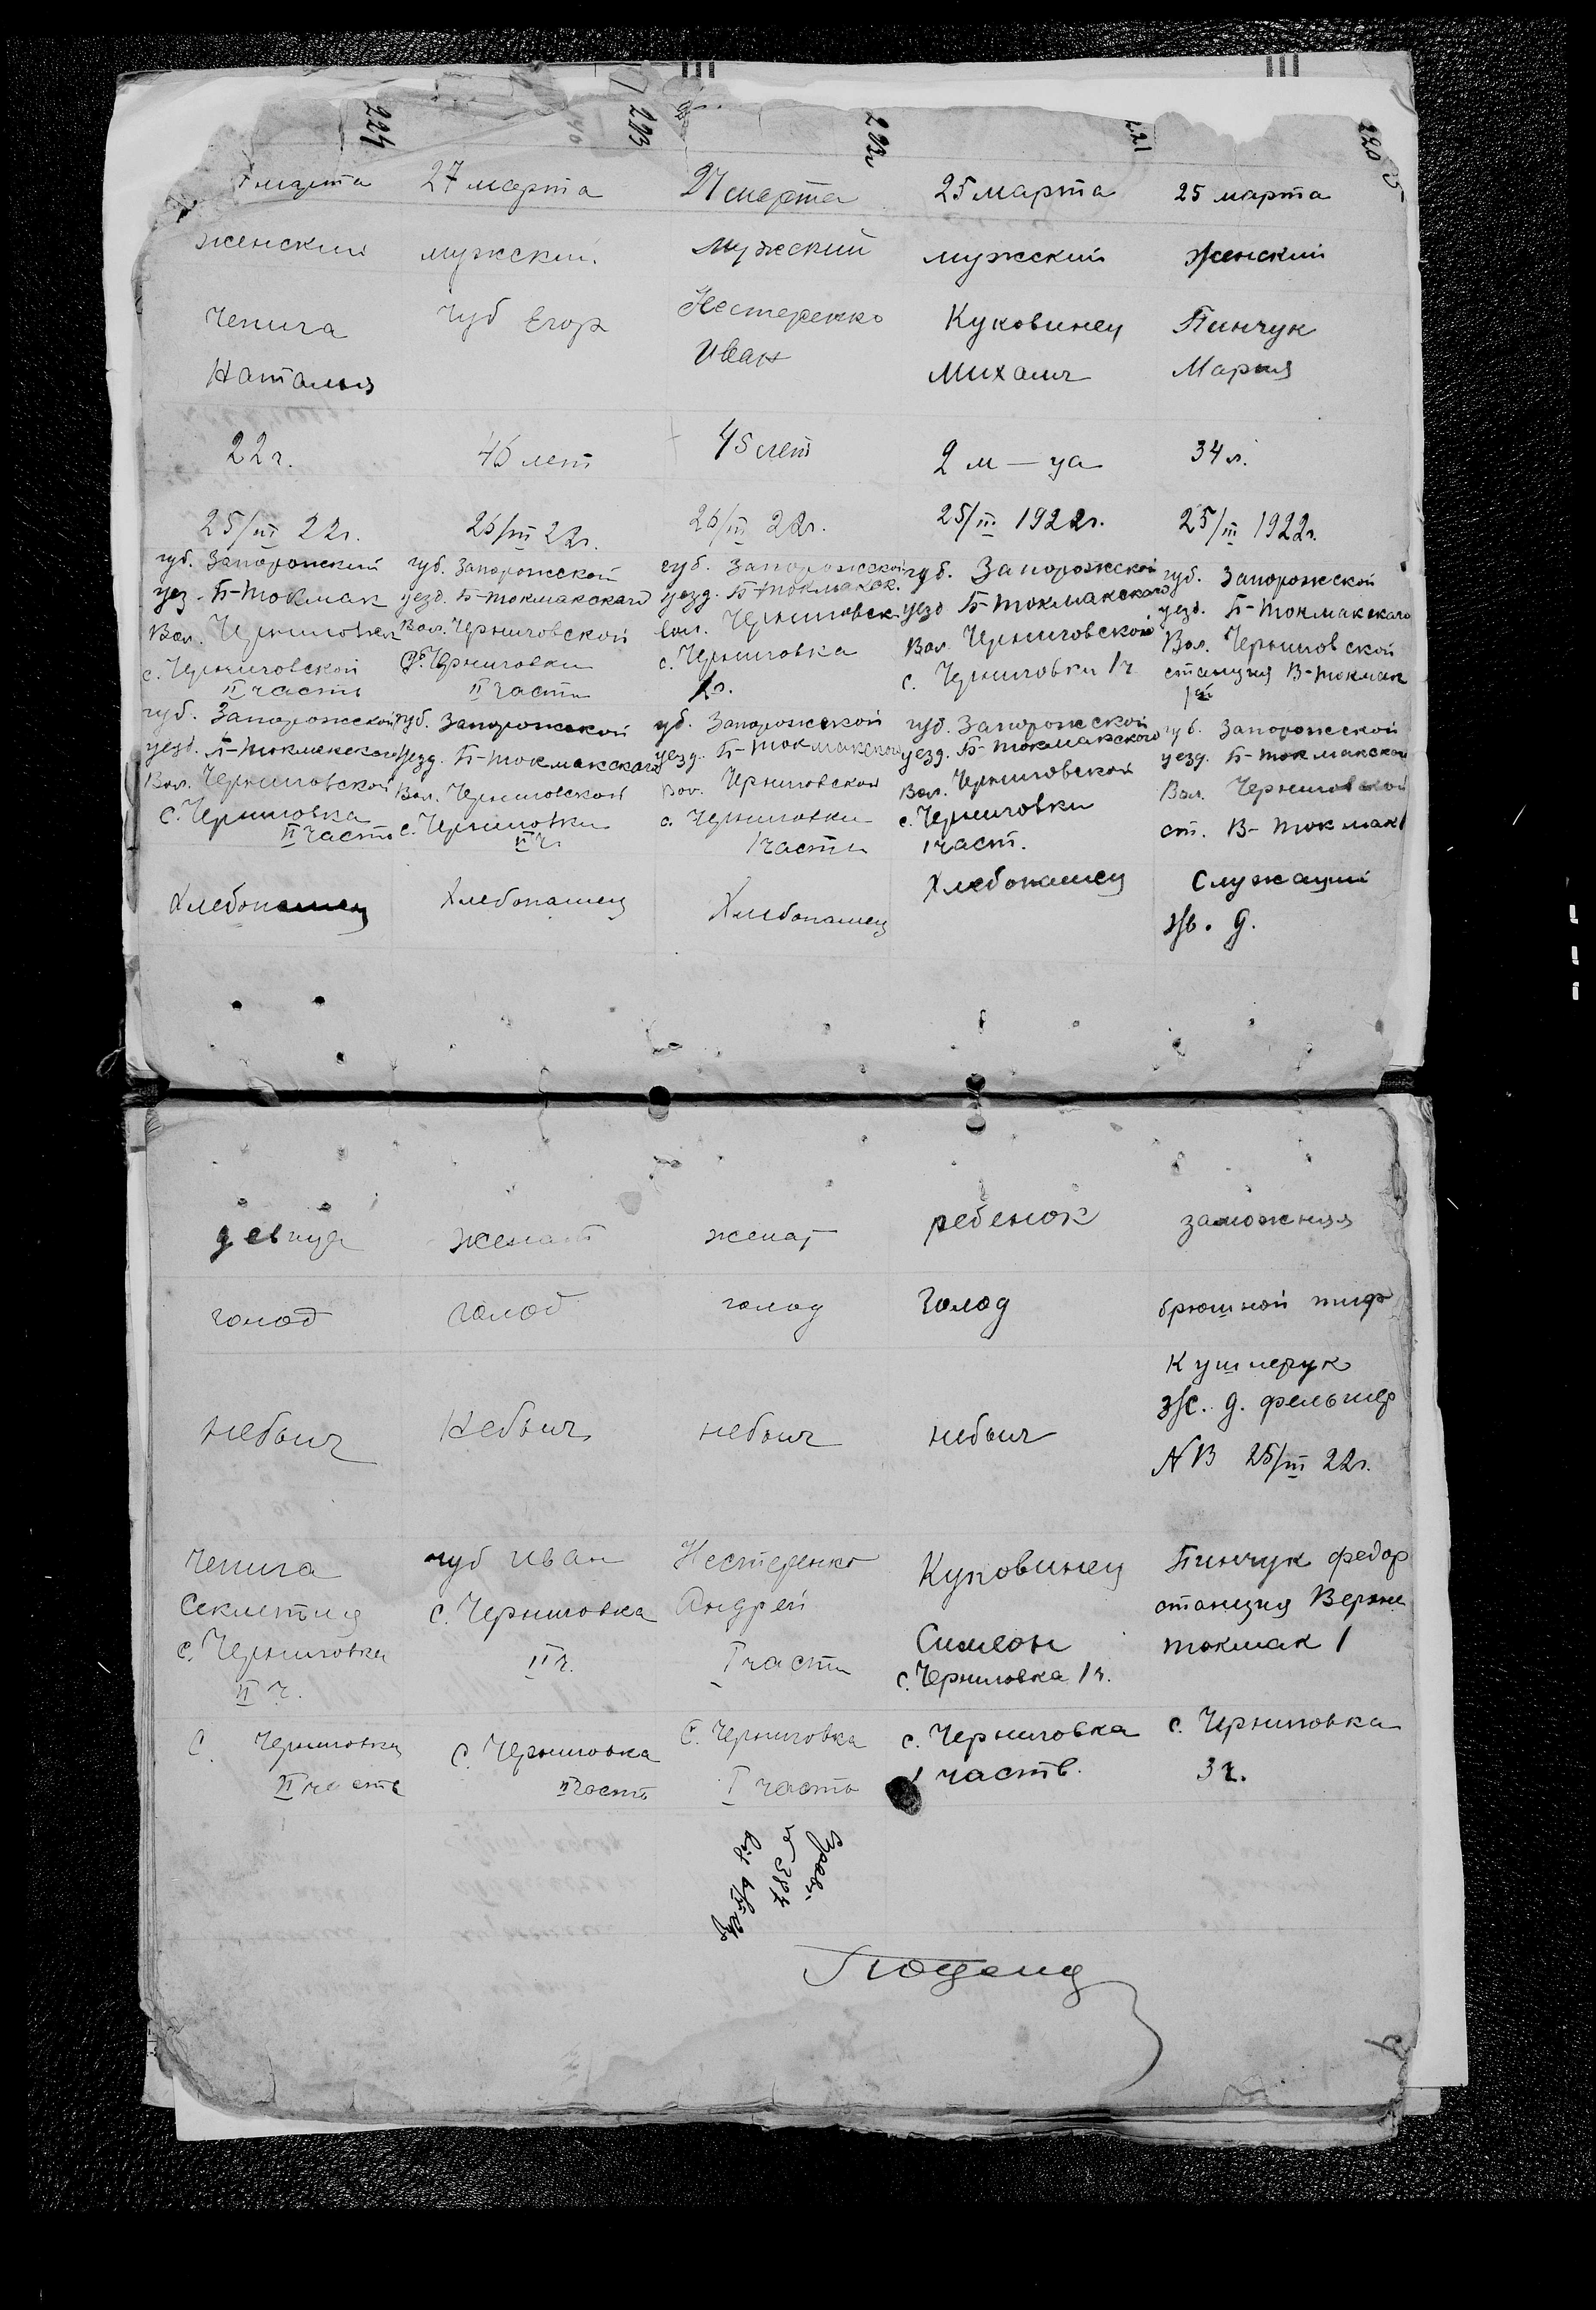 224
223
222
221
220
марта
27 марта
27 марта
25 марта
25 марта
женский
мужский
мужский
мужский
женский
Чепига
Наталия
Чуб Егор
Нестеренко
Иван
Куковинец
Михаил
Пинчук
Мария
22 г.
46 лет
45 лет
2 м-ца
34 л.
25/III 22 г.
26/III 22 г.
26/III 22 г.
25/III 1922 г.
25/III 1922 г.
губ. Запорожский
уез. Б-Токмак
Вол. Черниговка
с. Черниговской
II часть
губ. Запорожской
уезд. Б-Токмакского
Вол. Черниговской
с. Черниговки
II части
губ. Запорожской
уезд. Б-Токмакск.
вол. Черниговск
с. Черниговка
1 ч.
губ. Запорожской
уезд Б-Токмакского
Вол. Черниговской
с. Черниговки 1 ч
губ. Запорожской
уезд. Б-Токмакского
Вол. Черниговской
станция В-Токмак
губ. Запорожской
уезд. Б-Токмакского
Вол. Черниговской
с. Черниговка
II часть
губ. Запорожской
уезд. Б-Токмакского
Вол. Черниговской
с. Черниговки
II ч.
губ. Запорожской
уезд. Б-Токмакского
Вол. Черниговской
с. Черниговки
1 части
губ. Запорожской
уезд. Б-Токмакского
Вол. Черниговской
с. Черниговки
1 част.
губ. Запорожской
уезд. Б-Токмакской
Вол. Черниговской
ст. В-Токмак 1
Хлебопашец
Хлебопашец
Хлебопашец
Хлебопашец
Служащий
ж. д.
девица
женат
женат
ребенок
заможняя
голод
голод
голод
Голод
брюшной тиф
небыл
Небыл
небыл
небыл
Кушнерук
ж. д. фельшер
NB 25/III 22 г.
Чепига
Секлетия
с. Черниговки
II ч.
Чуб Иван
с. Черниговка
II ч.
Нестеренко
Андрей
I части
Куковинец
Симеон
с. Черниговка 1 ч.
Пинчук Федор
станция Верхне
Токмак 1
с. Черниговки
II часть
с. Черниговка
II часть
с. Черниговка
I часть
с. Черниговка
1 часть.
с. Черниговка
3 ч.